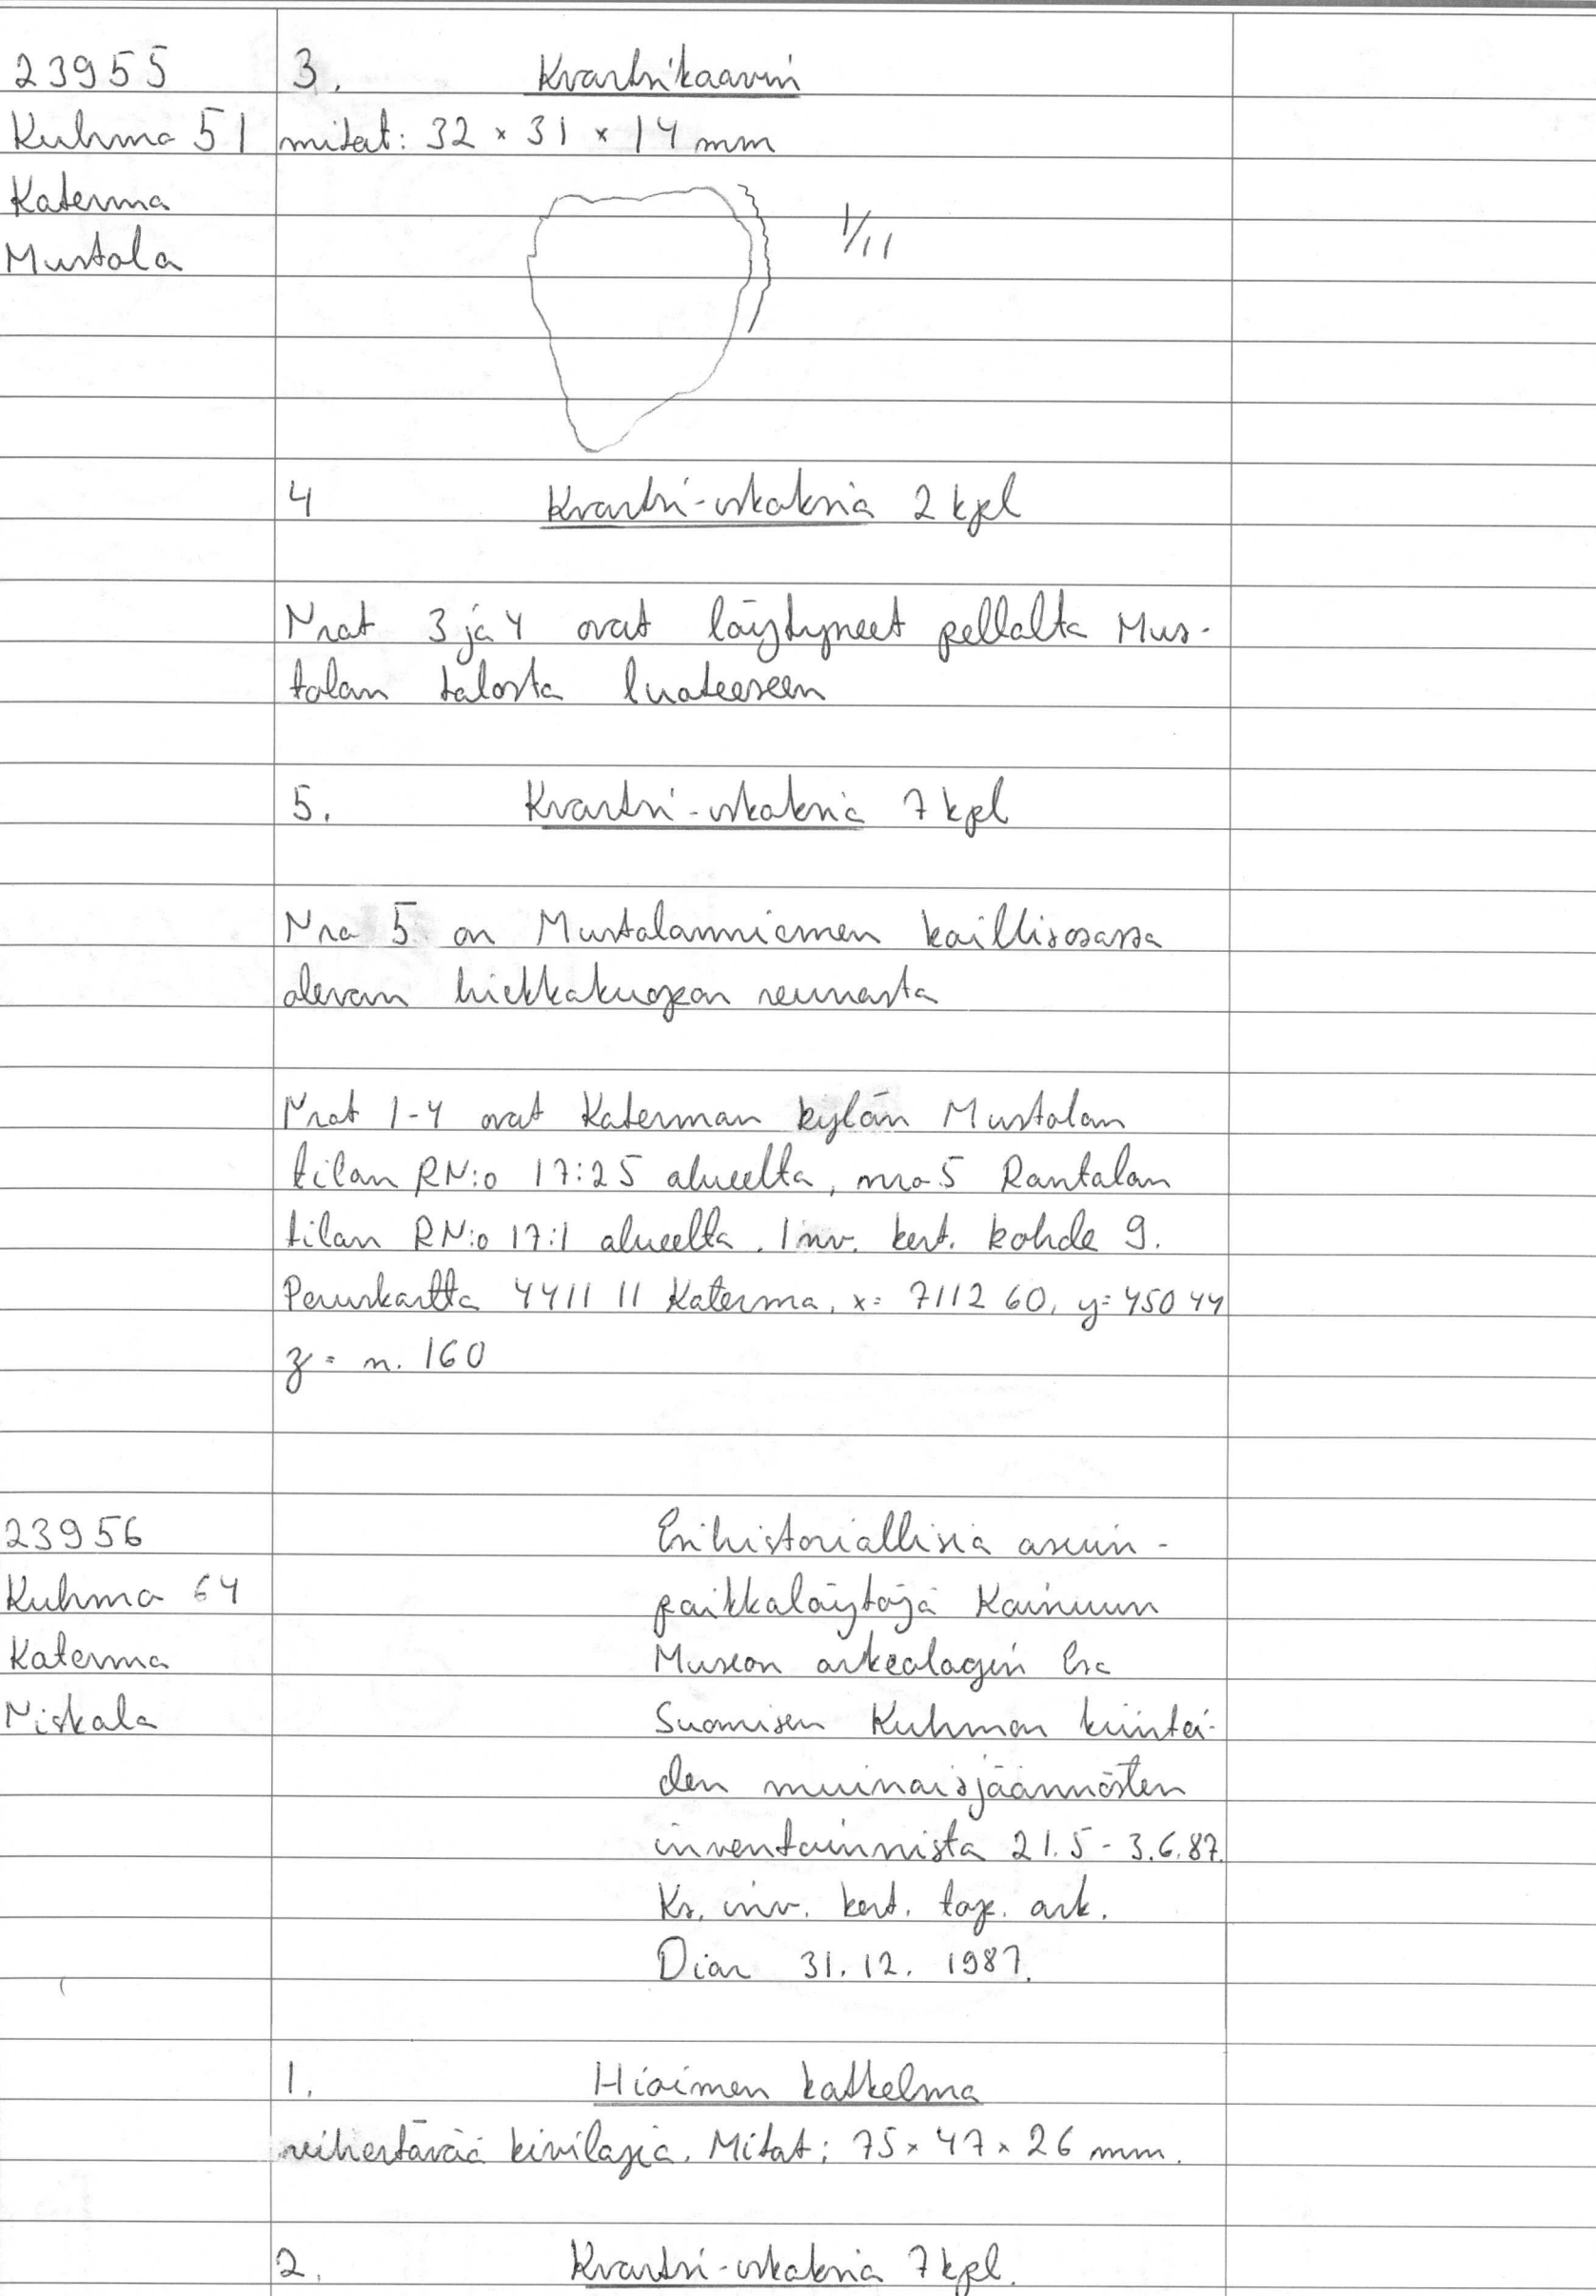 23955 3. Kvartsikaavin
Kuhmo 51 mitat: 32 x 31 x 14 mm
Katerma
Mustola 1/11
4 Kvartsi-iskoksia 2 kpl
Nrot 3 ja 4 ovat löytyneet pellolta Mus-
tolan talosta luoteeseen
5. Kvartsi-iskoksia 7 kpl
Nro 5 on Mustolanniemen koillisosassa
olevan hiekkakuopan reunasta
Nrot 1-4 ovat Katerman kylän Mustolan
tilan RN:o 17:25 alueelta, nro 5 Rantalan
tilan RN:o 17:1 alueelta. Inv. kert. kohde 9.
Peruskartta 4411 11 Katerma, x= 7112 60, y= 450 44
z = n. 160
23956 Esihistoriallisia asuin-
Kuhmo 64 paikkalöytöjä Kainuun
Katerma Museon arkeologin Esa
Niskala Suomisen Kuhmon kiintei-
den muinaisjäännösten
inventoinnista 21.5-3.6.87.
Ks. inv. kert. top. ark.
Diar 31.12. 1987.
1. Hioimen katkelma
vihertävää kivilajia. Mitat: 75 x 47 x 26 mm.
2. Kvartsi-iskoksia 7 kpl.